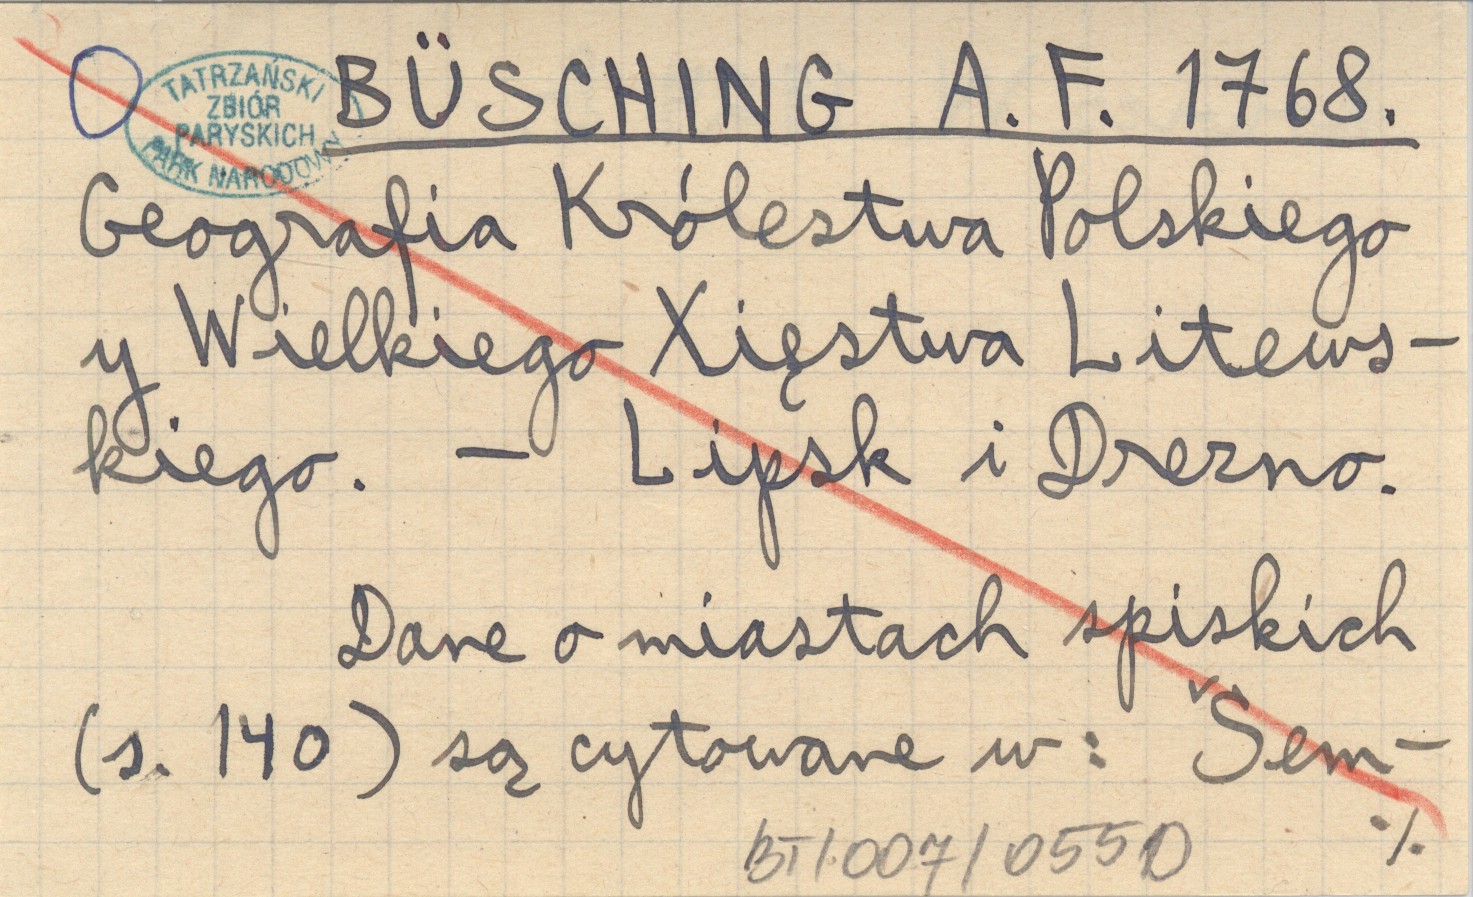 TATRZAŃSKI
ZBIÓR
PARYSKICH
PARK NARODOWY
BÜSCHING A. F. 1768.
Geografia Królestwa Polskiego
y Wielkiego Xięstwa Litews-
kiego. - Lipsk i Drezno.
Dane o miastach spiskich
(s. 140) są cytowane w: Šem-
./.
BT/007/0550